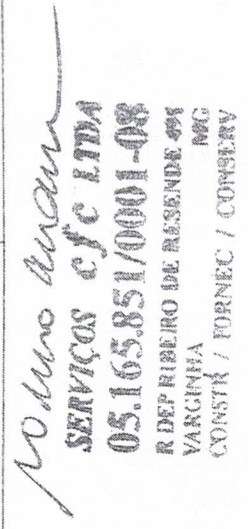 SERVIÇOS CJC LTDA
05.165.851/0001-08
R DEP RIBEIRO DE RESENDE
VARGINHA MG
CONSTR / FORNEC / CONSERV